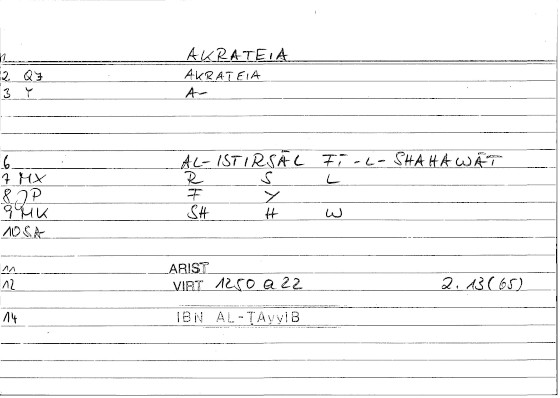 1 AKRATEIA
2 Q7 AKRATEIA
3 Y A-
6 AL-ISTIRSĀL FĪ-L-SHAHAWĀT
7 MX R S L
8 JP F Y
9 MK SH H W
10 SA
11 ARIST
12 VIRT 1250 a 22 2.13(65)
14 IBN AL-ṬAyyIB